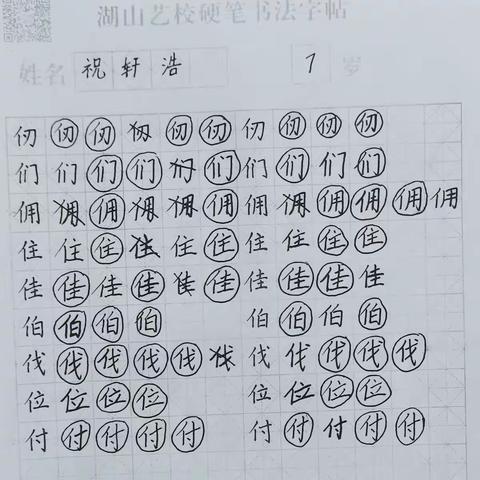 湖山艺校硬笔书法字帖
姓名 祝轩浩 7 岁
仞仞仞仞仞仞仞仞仞仞
们们们们们们们们们们
佣佣佣佣佣佣佣佣佣佣佣佣
住住住住住住住住住住
佳佳佳佳佳佳佳佳佳佳
伯伯伯伯 伯伯伯伯
伐伐伐伐伐伐伐伐伐伐伐
位位位位 位位位位
付付付付付 付付付付付